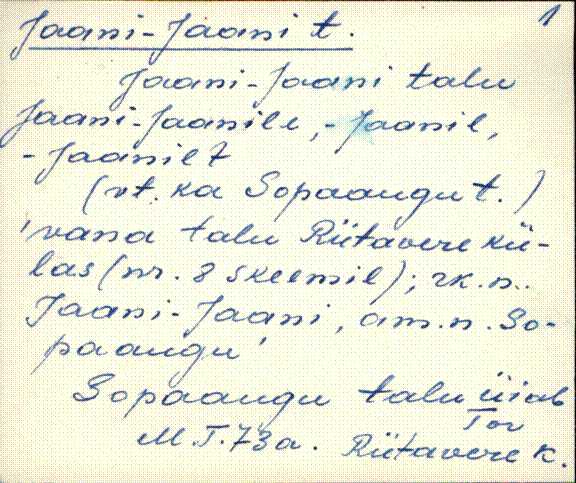 1
Jaani-Jaani t.
Jaani-Jaani talu
Jaani-Jaanile, -Jaanil,
-Jaanilt
(vt. ka Sopaaugu t.)
'vana talu Riitavere kü-
las (nr. 8 skeemil); rk.n..
Jaani-Jaani, am.n. So-
paaugu'
Sopaaugu talu
Tor
M.T. 73a. Riitavere k.